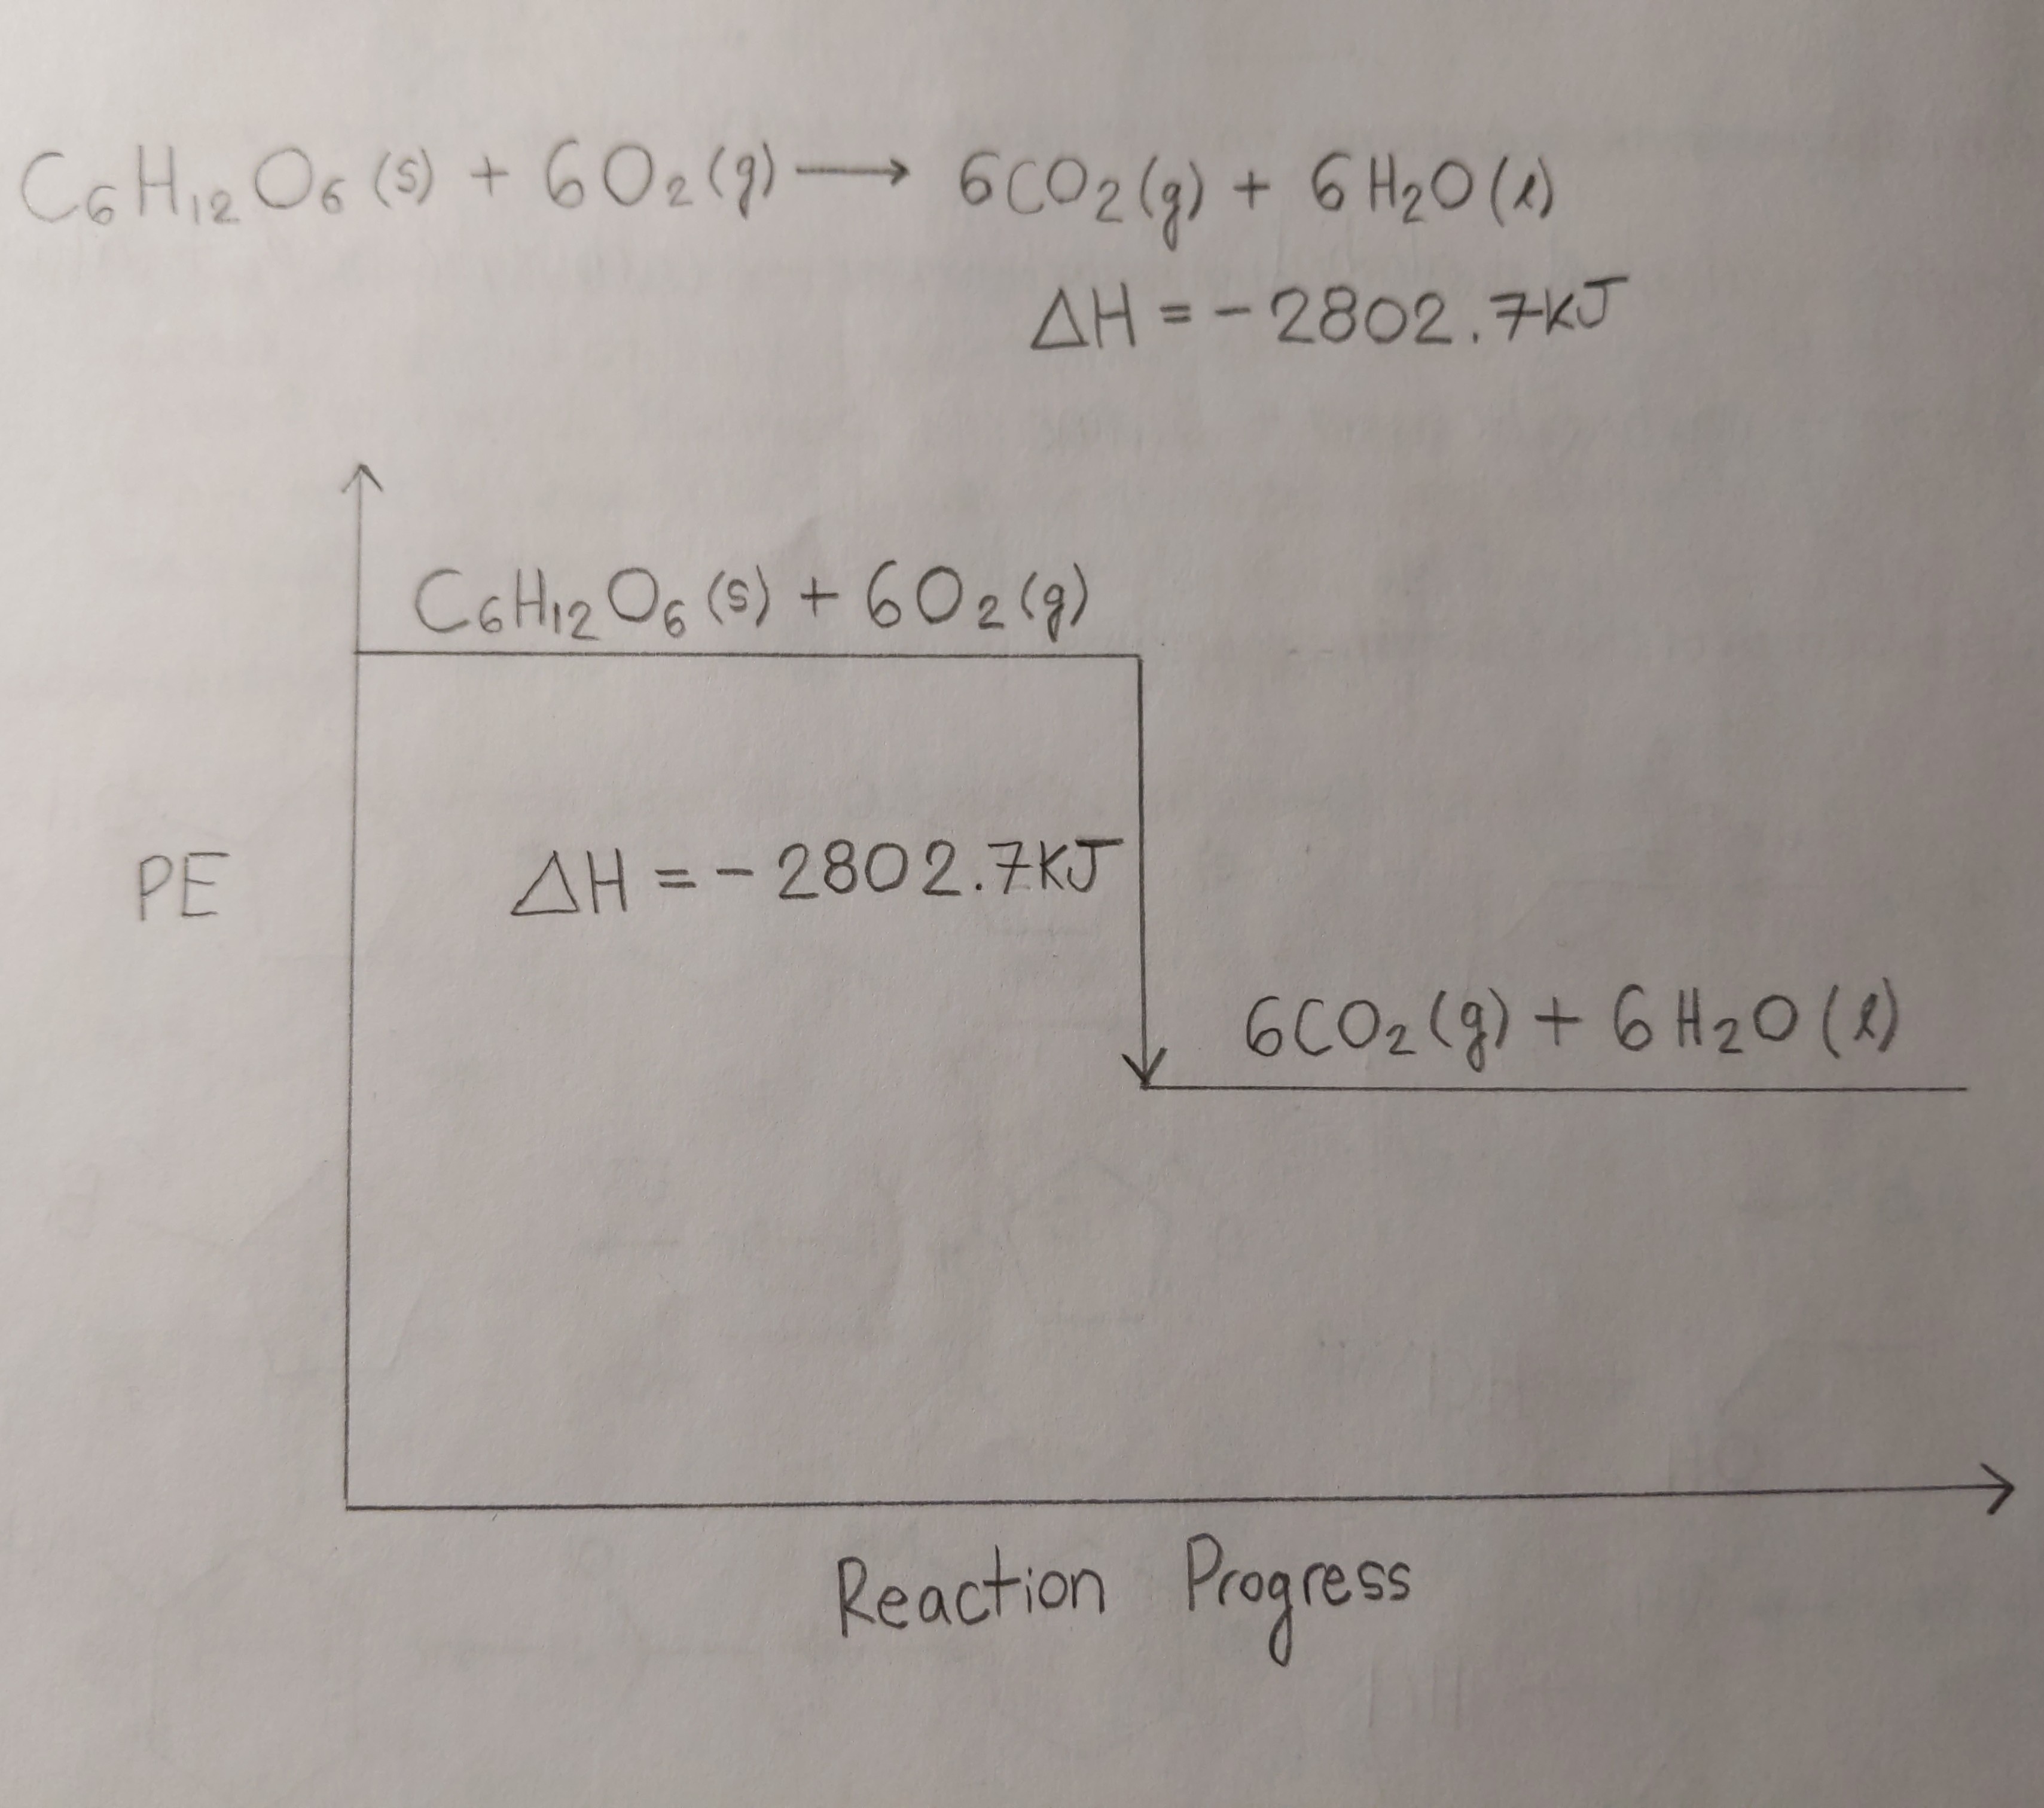 C₆H₁₂O₆(s) + 6O₂(g) ⟶ 6CO₂(g) + 6H₂O(l)
ΔH = -2802.7kJ
C₆H₁₂O₆(s) + 6O₂(g)
PE
ΔH = -2802.7KJ
6CO₂(g) + 6H₂O(l)
Reaction Progress